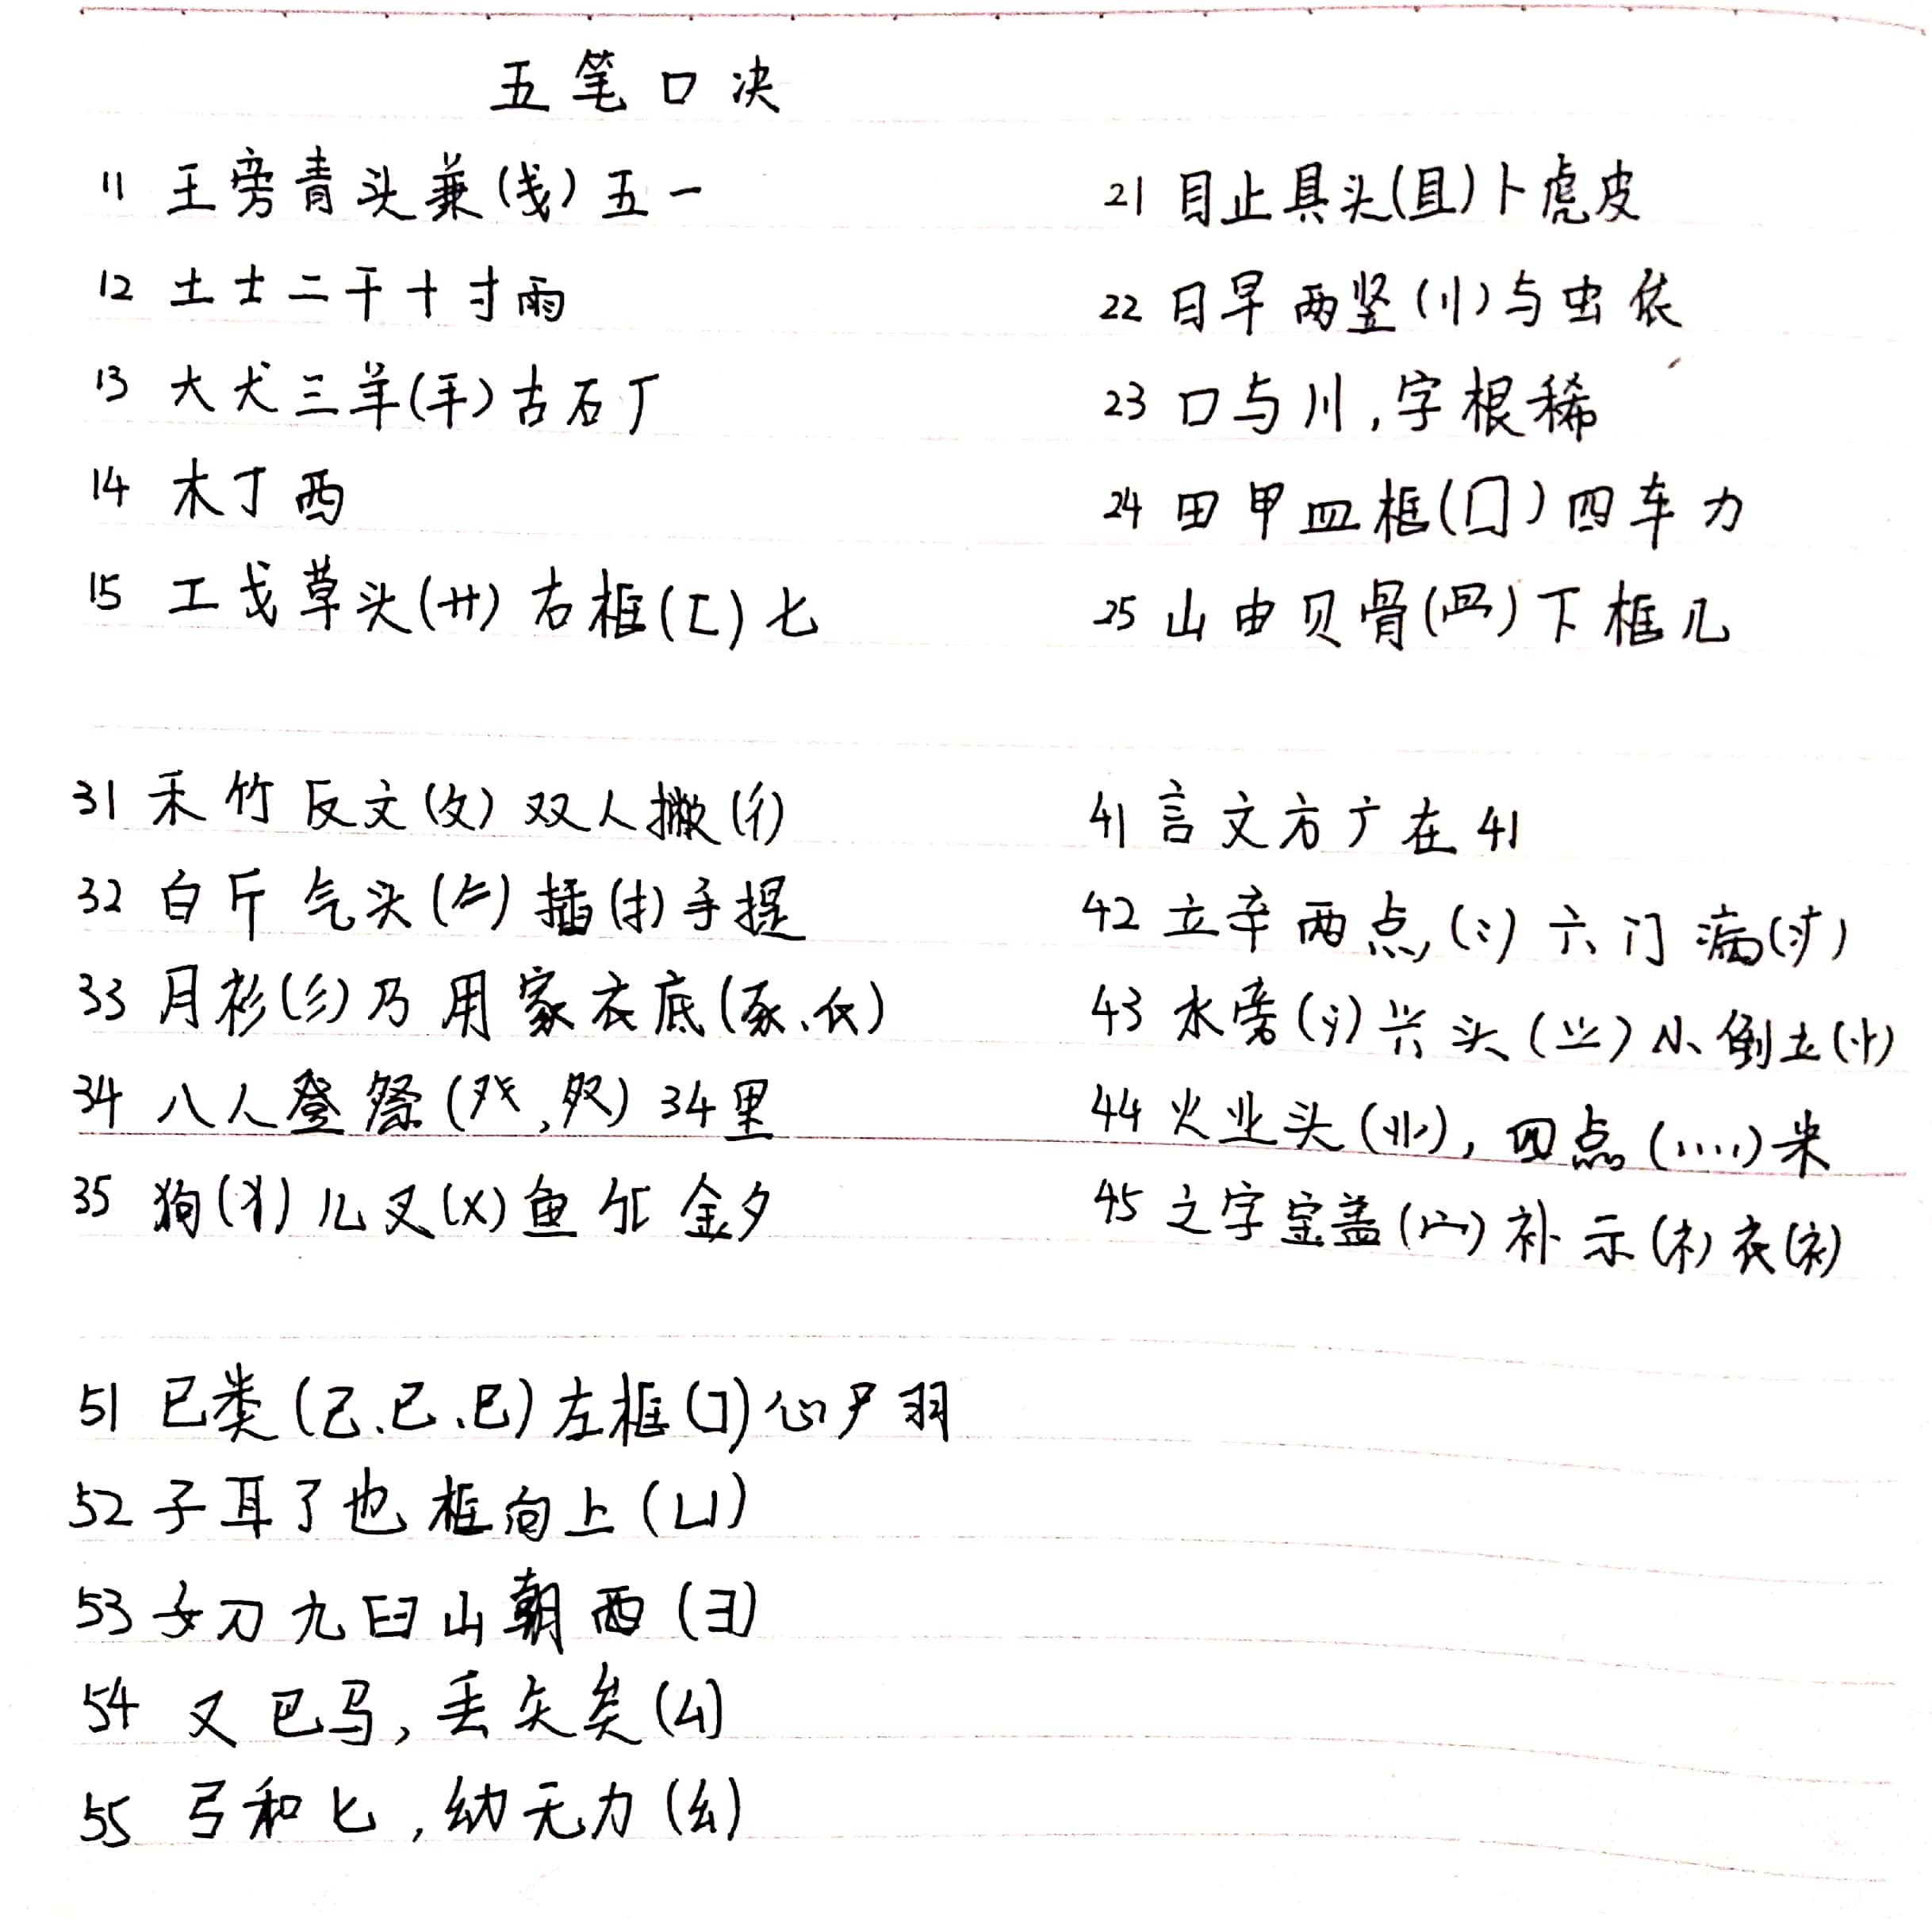 五笔口决
11 王旁青头兼(戋)五一
12 土士二干十寸雨
13 大犬三羊(手)古石厂
14 木丁西
15 工戈草头(艹)右框(匚)七
21 目止具头(且)卜虎皮
22 日早两竖(刂)与虫依
23 口与川,字根稀
24 田甲皿框(囗)四车力
25 山由贝骨(⺼)下框几
31 禾竹反文(攵)双人撇(彳)
32 白斤气头(𠂉)插(扌)手提
33 月衫(彡)乃用家衣底(豕、𧘇)
34 八人登祭(癶,⺈)34里
35 狗(犭)儿叉(乂)鱼尔金夕
41 言文方广在41
42 立辛两点(冫)六门病(疒)
43 水旁(氵)兴头(⺍)小倒土(丬)
44 火业头(业),四点(灬)米
45 之字宝盖(宀)补示(礻)衣(衤)
51 已类(己、已、巳)左框(コ)心尸羽
52 子耳了也框向上(凵)
53 女刀九臼山朝西(彐)
54 又巴马,丢矢矣(厶)
55 弓和匕,幼无力(幺)